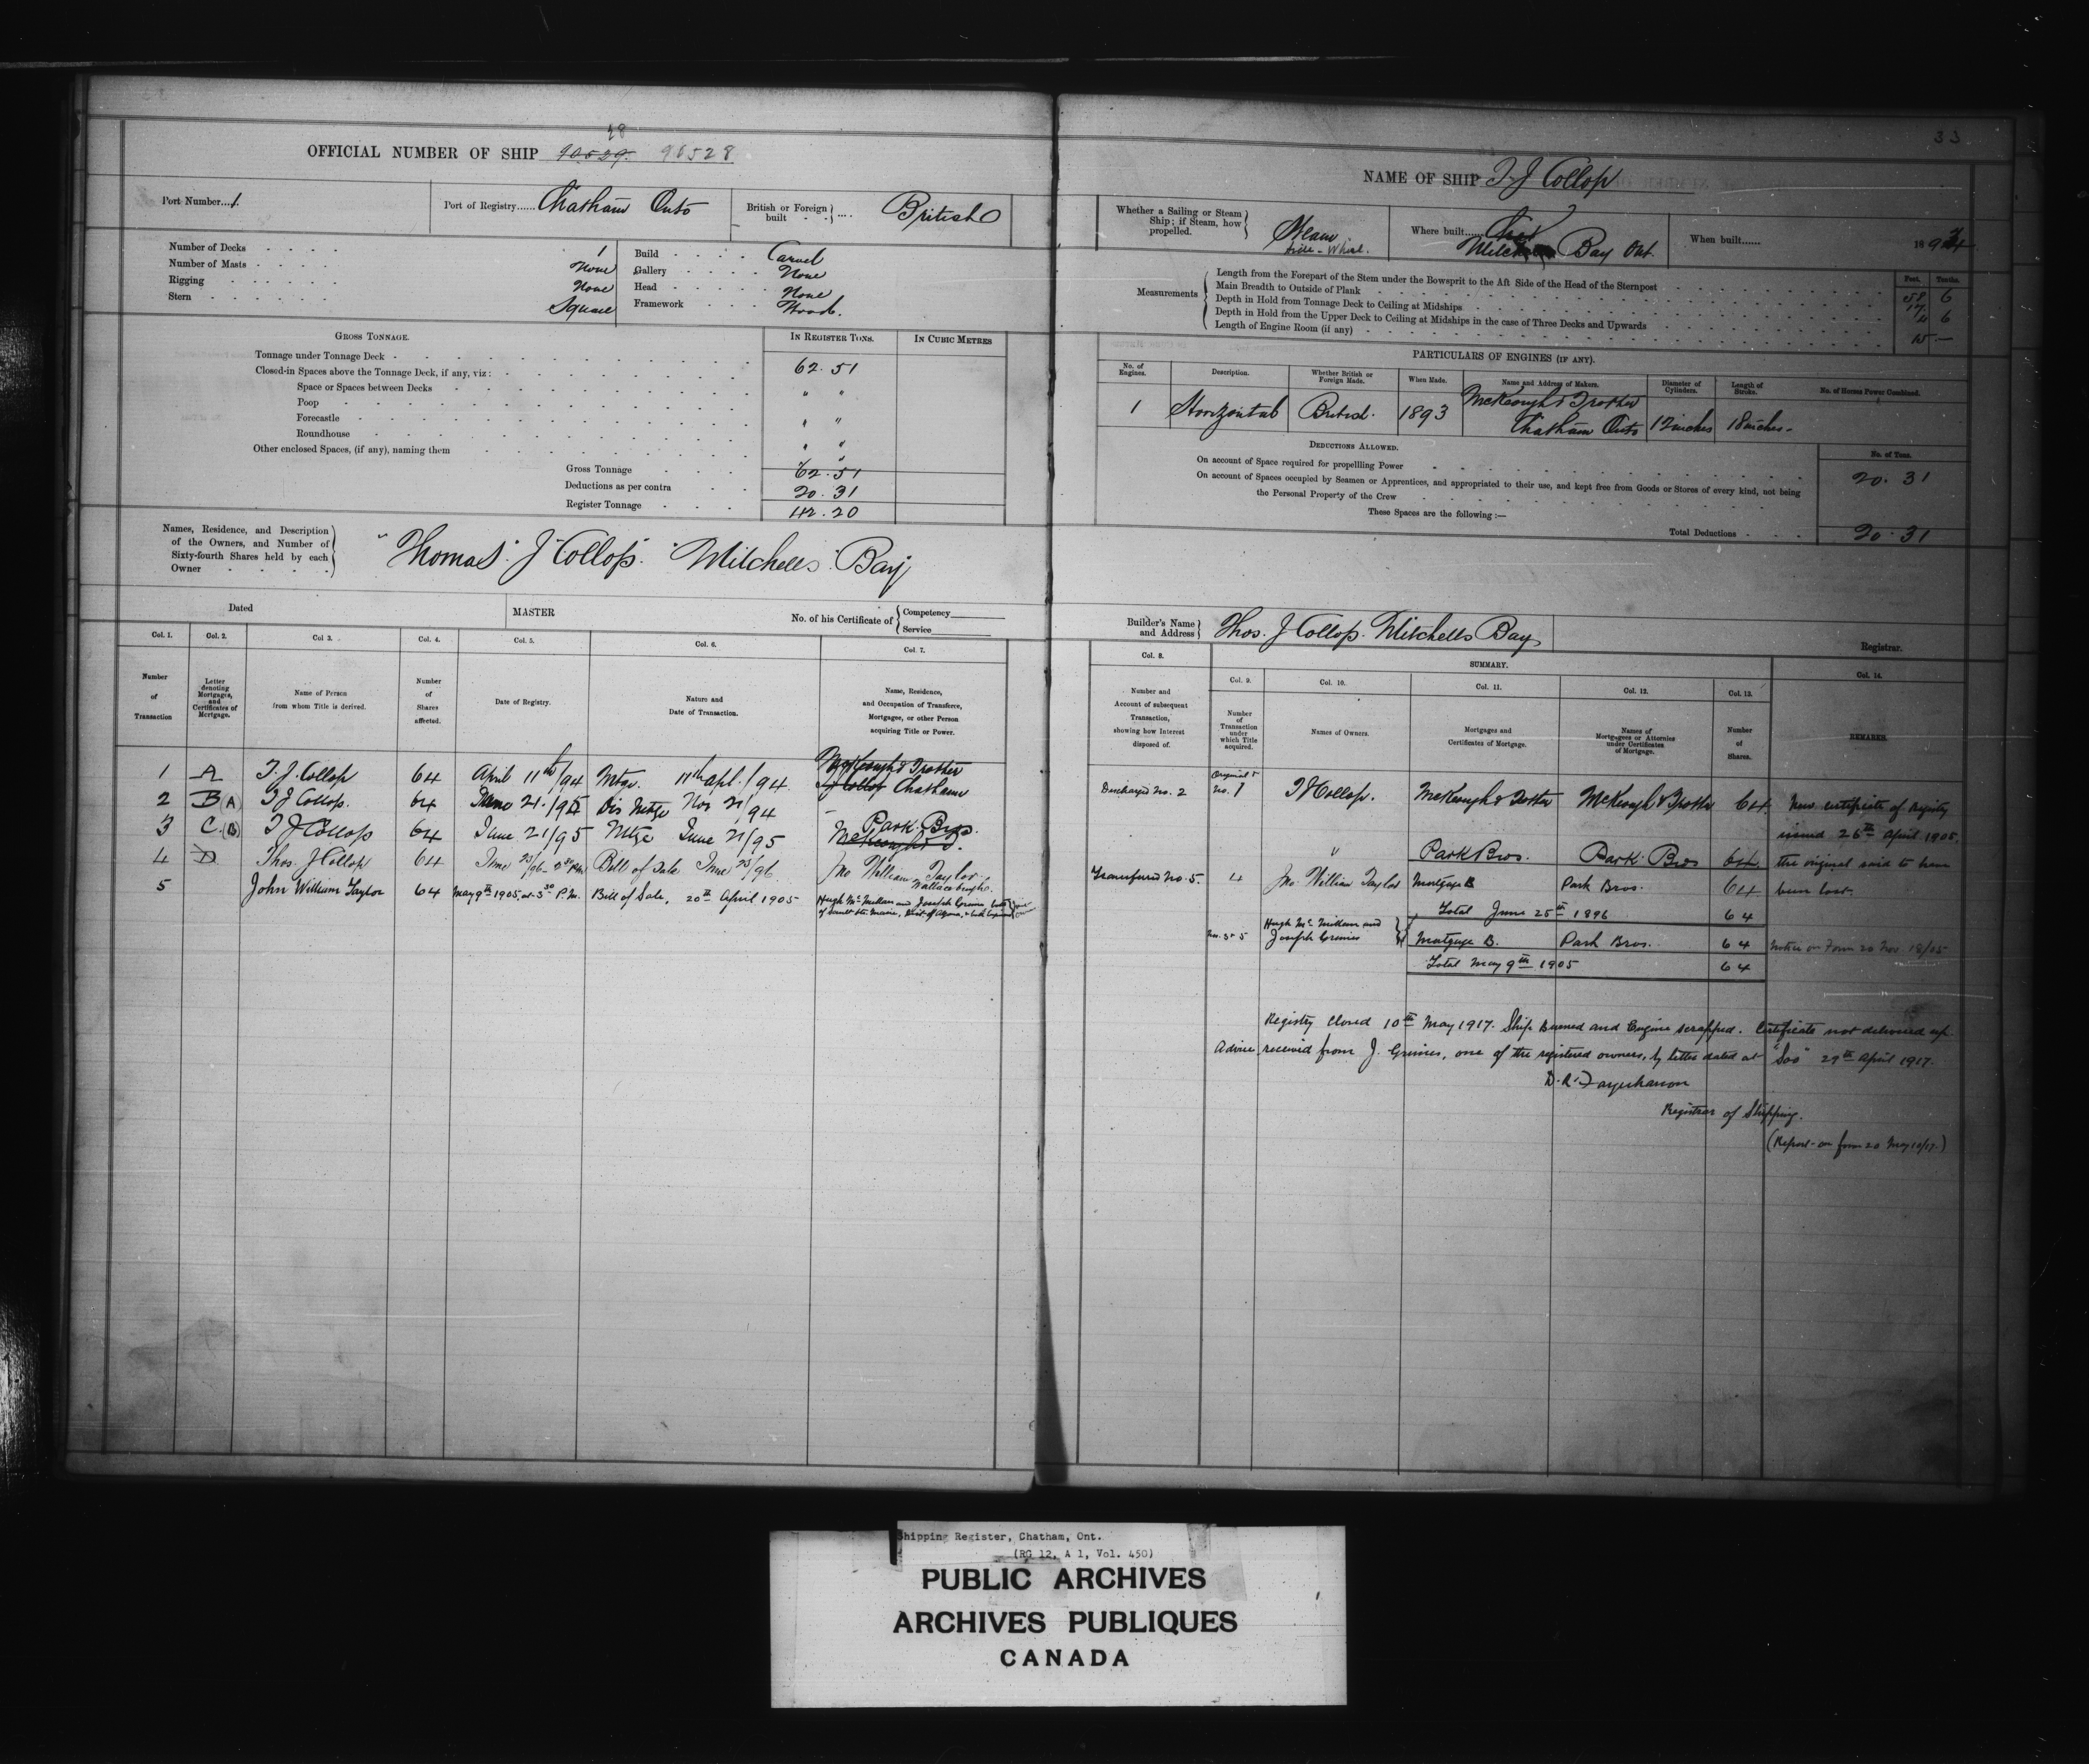 28
OFFICIAL NUMBER OF SHIP 90529. 90528
Port Number...1.
Port of Registry...... Chatham Onto
British or Foreign built .... British
Number of Decks 1
Number of Masts None
Rigging None
Stern Square
Build Carvel
Gallery None
Head None
Framework Wood.
GROSS TONNAGE.
IN REGISTER TONS.
IN CUBIC METRES
Tonnage under Tonnage Deck 62.51
Closed-in Spaces above the Tonnage Deck, if any, viz:
Space or Spaces between Decks " "
Poop
Forecastle " "
Roundhouse
Other enclosed Spaces, (if any), naming them " "
Gross Tonnage 62.51
Deductions as per contra 20.31
Register Tonnage 42.20
Names, Residence, and Description
of the Owners, and Number of
Sixty-fourth Shares held by each
Owner
Thomas J Collop. Mitchells Bay
Dated
MASTER
No. of his Certificate of
Competency
Service
Col. 1. Col. 2. Col 3. Col. 4. Col. 5. Col. 6. Col. 7.
Number of Transaction
Letter denoting Mortgages, and Certificates of Mortgage.
Name of Person from whom Title is derived.
Number of Shares affected.
Date of Registry.
Nature and Date of Transaction.
Name, Residence, and Occupation of Transferee, Mortgagee, or other Person acquiring Title or Power.
1 A T. J. Collop 64 April 11th/94 Mtge. 11th apl./94 McKeough & Trotter
T J Collop Chatham
2 B (A) T J Collop. 64 June 21./95 Dis Mtge Nov 21/94
3 C. (B) T J Collop 64 June 21/95 Mtge June 21/95 Park Bros.
McKeough &
4 D Thos. J Collop 64 June 25/96 Bill of Sale June 25/96. Jno William Taylor
Wallaceburgh.
5 John William Taylor 64 May 9th 1905. at 3.30 P.M. Bill of Sale, 20th April 1905 Hugh McMillan and Joseph Grenier, both
of Sault Ste. Marie, Dist of Algoma,
33
NAME OF SHIP T J Collop
Whether a Sailing or Steam Ship; if Steam, how propelled.
Steam
Side-Wheel.
Where built...... Mitchells Bay Ont.
When built...... 1894
Measurements
Length from the Forepart of the Stem under the Bowsprit to the Aft Side of the Head of the Sternpost
Main Breadth to Outside of Plank
Depth in Hold from Tonnage Deck to Ceiling at Midships
Depth in Hold from the Upper Deck to Ceiling at Midships in the case of Three Decks and Upwards
Length of Engine Room (if any)
Feet. Tenths.
58 6
17
4 6
15 —
PARTICULARS OF ENGINES (IF ANY).
No. of Engines.
Description.
Whether British or Foreign Made.
When Made.
Name and Address of Makers.
Diameter of Cylinders.
Length of Stroke.
No. of Horses Power Combined.
1 Horizontal British. 1893 McKeough & Trotter
Chatham Onto 12 inches 18 inches.
DEDUCTIONS ALLOWED.
No. of Tons.
On account of Space required for propellling Power 20.31
On account of Spaces occupied by Seamen or Apprentices, and appropriated to their use, and kept free from Goods or Stores of every kind, not being
the Personal Property of the Crew
These Spaces are the following:—
Total Deductions 20.31
Builder's Name and Address
Thos. J Collop. Mitchells Bay
Registrar.
Col. 8.
SUMMARY.
Col. 9. Col. 10. Col. 11. Col. 12. Col. 13. Col. 14.
Number and Account of subsequent Transaction, showing how Interest disposed of.
Number of Transaction under which Title acquired.
Names of Owners.
Mortgages and Certificates of Mortgage.
Names of Mortgagees or Attornies under Certificates of Mortgage.
Number of Shares.
REMARKS.
Discharged No. 2 Original & No. 1 T J Collop. McKeough & Trotter McKeough & Trotter 64 New certificate of Registry
issued 26th April 1905.
" Park Bros. Park Bros 64 the original said to have
Transferred No. 5. 4 Jno. William Taylor Mortgage B Park Bros. 64 been lost.
Total June 25th 1896 64
Nos. 3 & 5 Hugh McMillan and
Joseph Grenier Mortgage B. Park Bros. 64 Notice on Form 20 Nov. 18/05
Total May 9th 1905 64
Registry closed 10th May 1917. Ship Burned and Engine scrapped. Certificate not delivered up
Advice received from J. Grenier, one of the registered owners, by letter dated at "Soo" 29th April 1917.
Registrar of Shipping.
(Report on form 20 May 10/17.)
Shipping Register, Chatham, Ont.
(RG 12, A 1, Vol. 450)
PUBLIC ARCHIVES
ARCHIVES PUBLIQUES
CANADA